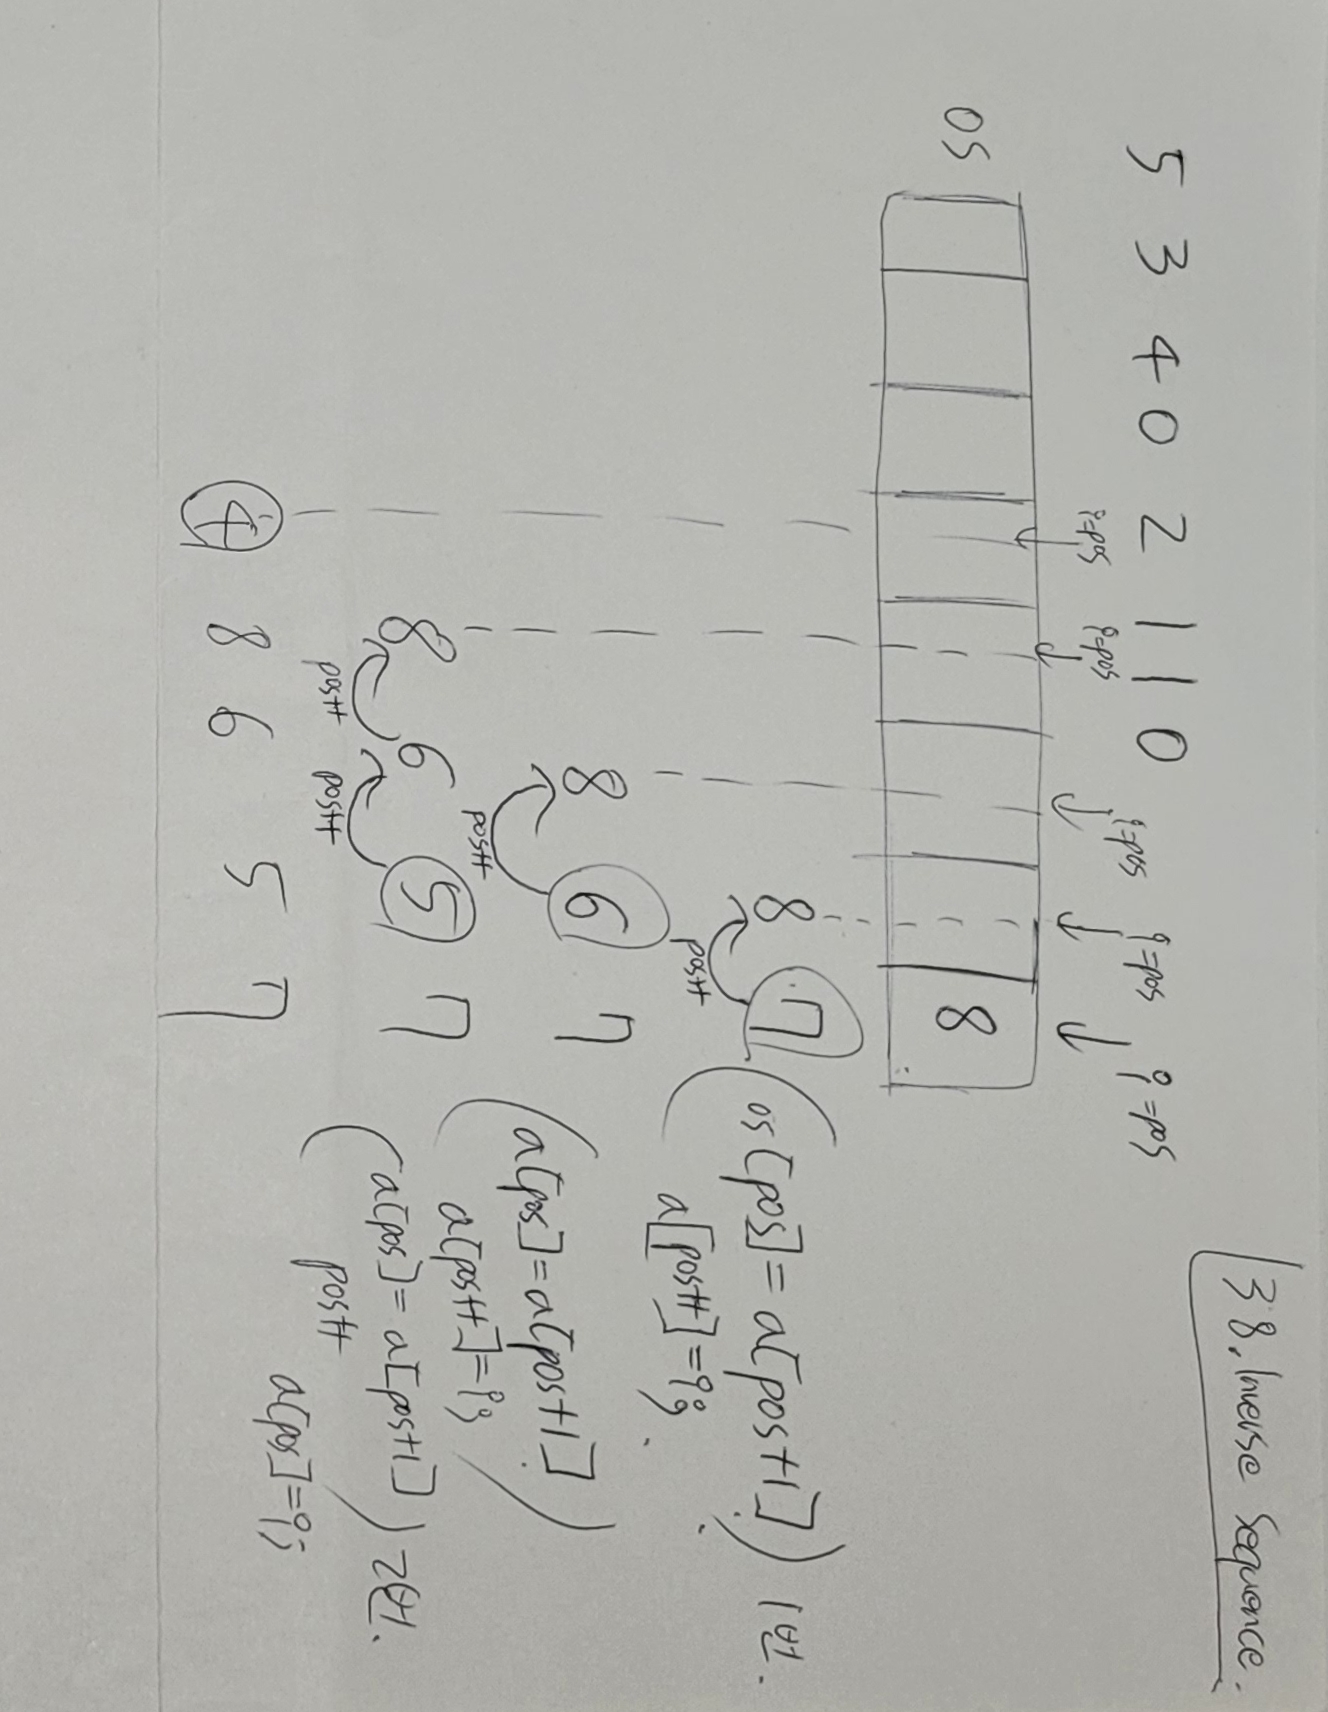 38. Inverse Sequence.
5 3 4 0 2 1 1 0
i=pos i=pos i=pos i=pos i=pos
os 8
8 7 (os[pos]=a[pos+1]) 1번.
pos++ a[pos++]=i;
8 6 7 (a[pos]=a[pos+1])
pos++ a[pos++]=i;
8 6 5 7 (a[pos]=a[pos+1]) 2번.
pos++ pos++ pos++
a[pos]=i;
4 8 6 5 7